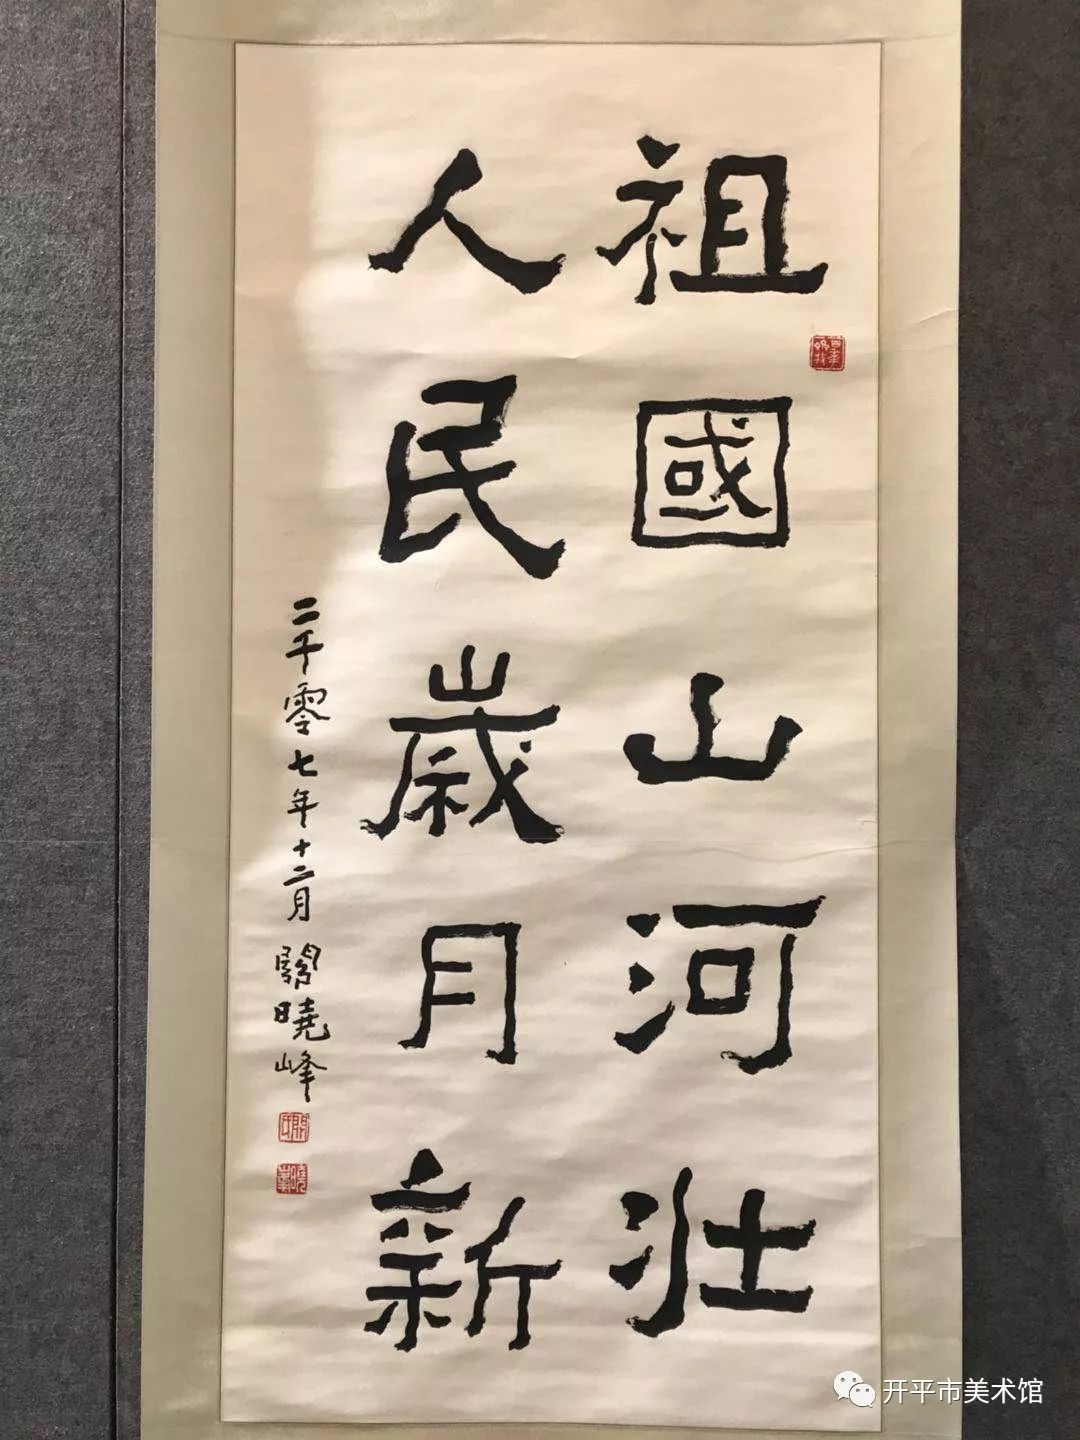 祖國山河壯
人民歲月新
二千零七年十二月關曉峰
开平市美术馆